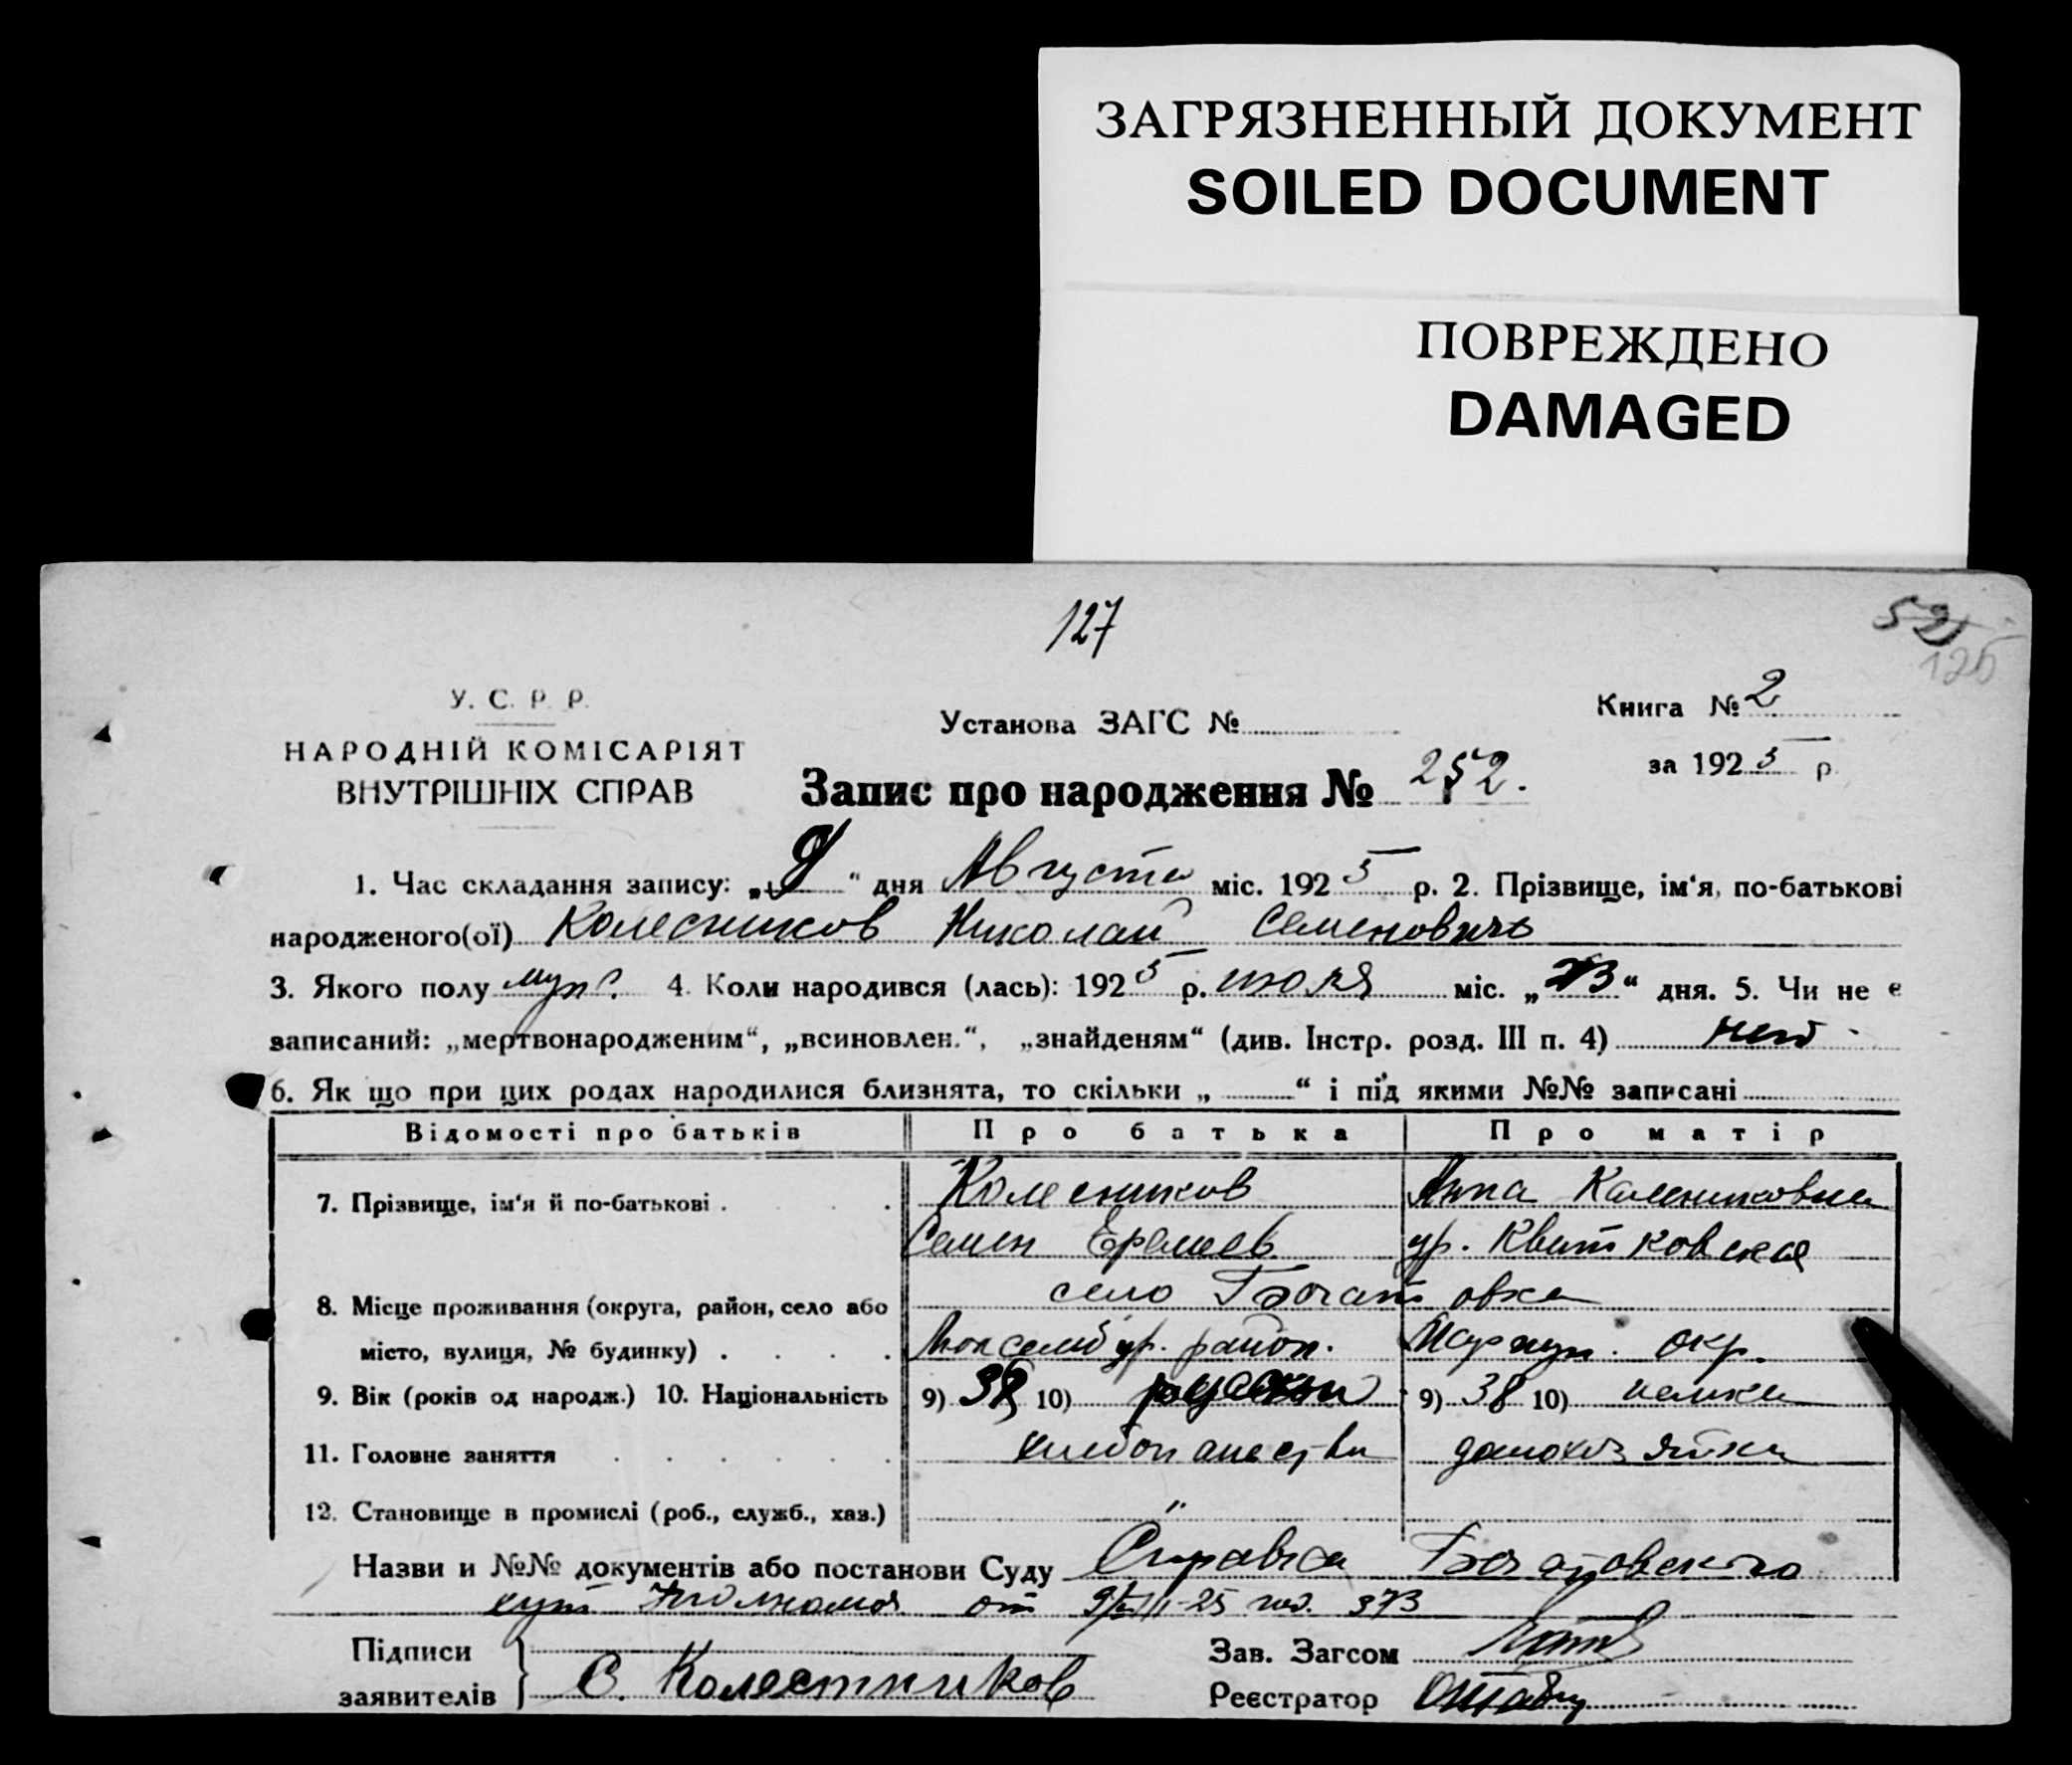 ЗАГРЯЗНЕННЫЙ ДОКУМЕНТ
SOILED DOCUMENT
ПОВРЕЖДЕНО
DAMAGED
127
52
125
У. С. Р. Р.
НАРОДНІЙ КОМІСАРІЯТ
ВНУТРІШНІХ СПРАВ
Установа ЗАГС №
Книга № 2
за 1925 р.
Запис про народження № 252.
1. Час складання запису: „9“ дня Августа міс. 1925 р. 2. Прізвище, ім‘я, по-батькові
народженого(ої) Колесников Николай Семеновичъ
3. Якого полу муж. 4. Коли народився (лась): 1925 р. июля міс. „23“ дня. 5. Чи не є
записаний: „мертвонародженим“, „всиновлен.“, „знайденям“ (див. Інстр. розд. III п. 4) нет
6. Як що при цих родах народилися близнята, то скільки „ “ і під якими №№ записані
Відомості про батьків Про батька Про матір
7. Прізвище, ім‘я й по-батькові . Колесников Анна Калениковна
Семен Еремеев ур. Квитковская
село Богатовка
8. Місце проживання (округа, район, село або
місто, вулиця, № будинку) . . . . район. Мариуп. окр.
9. Вік (років од народж.) 10. Національність 9) 38 10) 9) 38 10) немка
11. Головне заняття хлебопашества домохозяйка
12. Становище в промислі (роб., служб., хаз.) "
Назви и №№ документів або постанови Суду Справка Богатовского
от 9/VIII-25 373
Підписи
заявителів С. Колестников
Зав. Загсом
Реєстратор